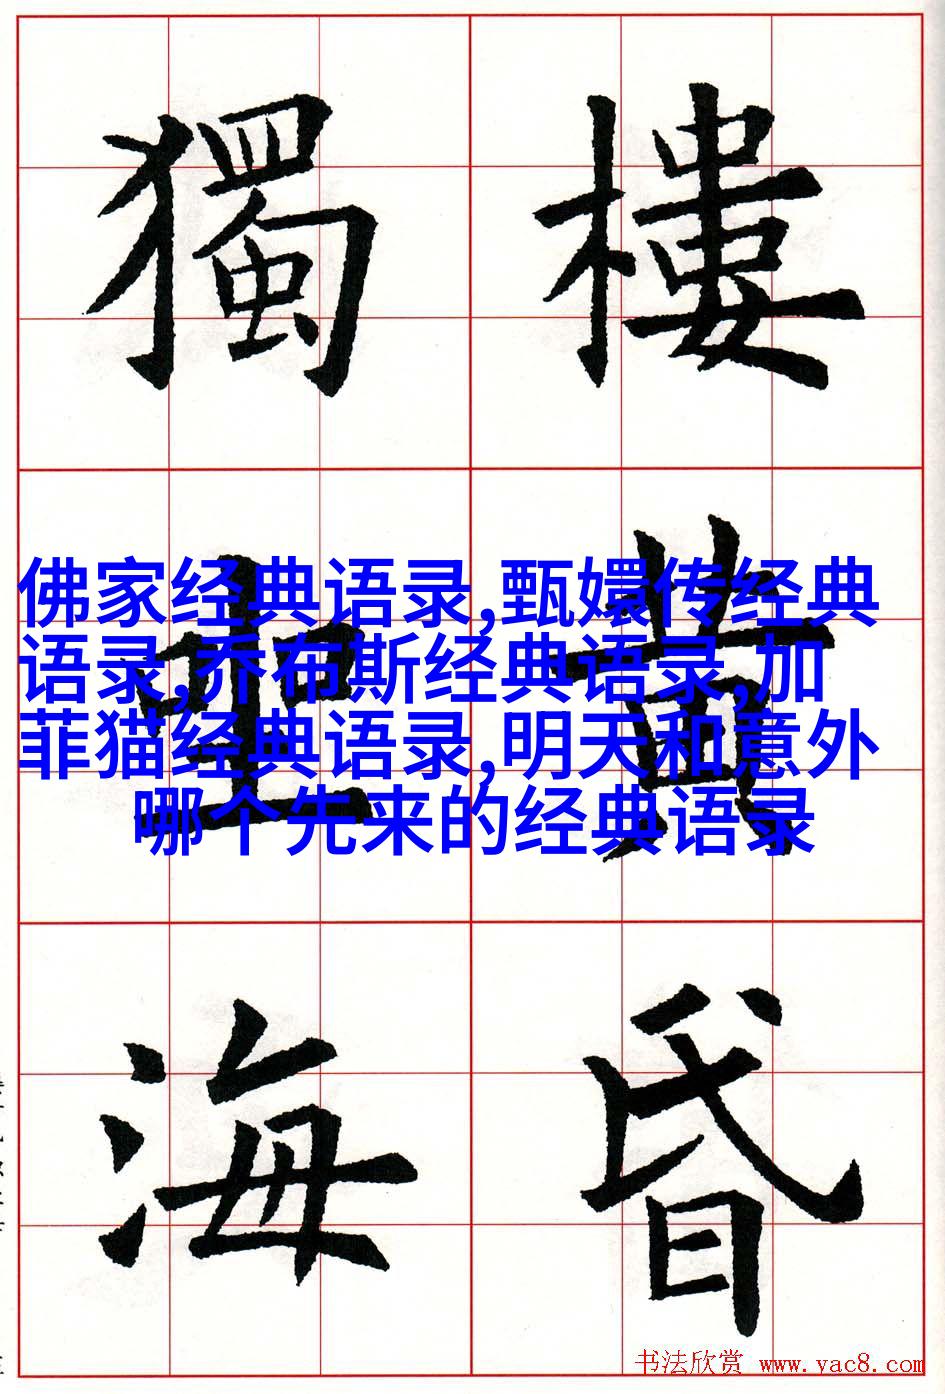 樓黄昏
獨海
佛家经典语录,甄嬛传经典
语录,乔布斯经典语录,加
菲猫经典语录,明天和意外
哪个先来的经典语录
书法欣赏 www.yac8.com